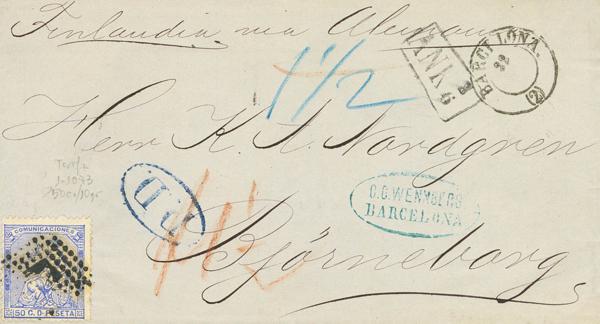 Finlandia via Aleman
ANK 9
BARCELONA.
22
(2)
1 1/2
Herr K. A. Nordgren
P.D.
C.G. WENNBERG
BARCELONA
Björneborg
COMUNICACIONES
50 C. D. PESETA